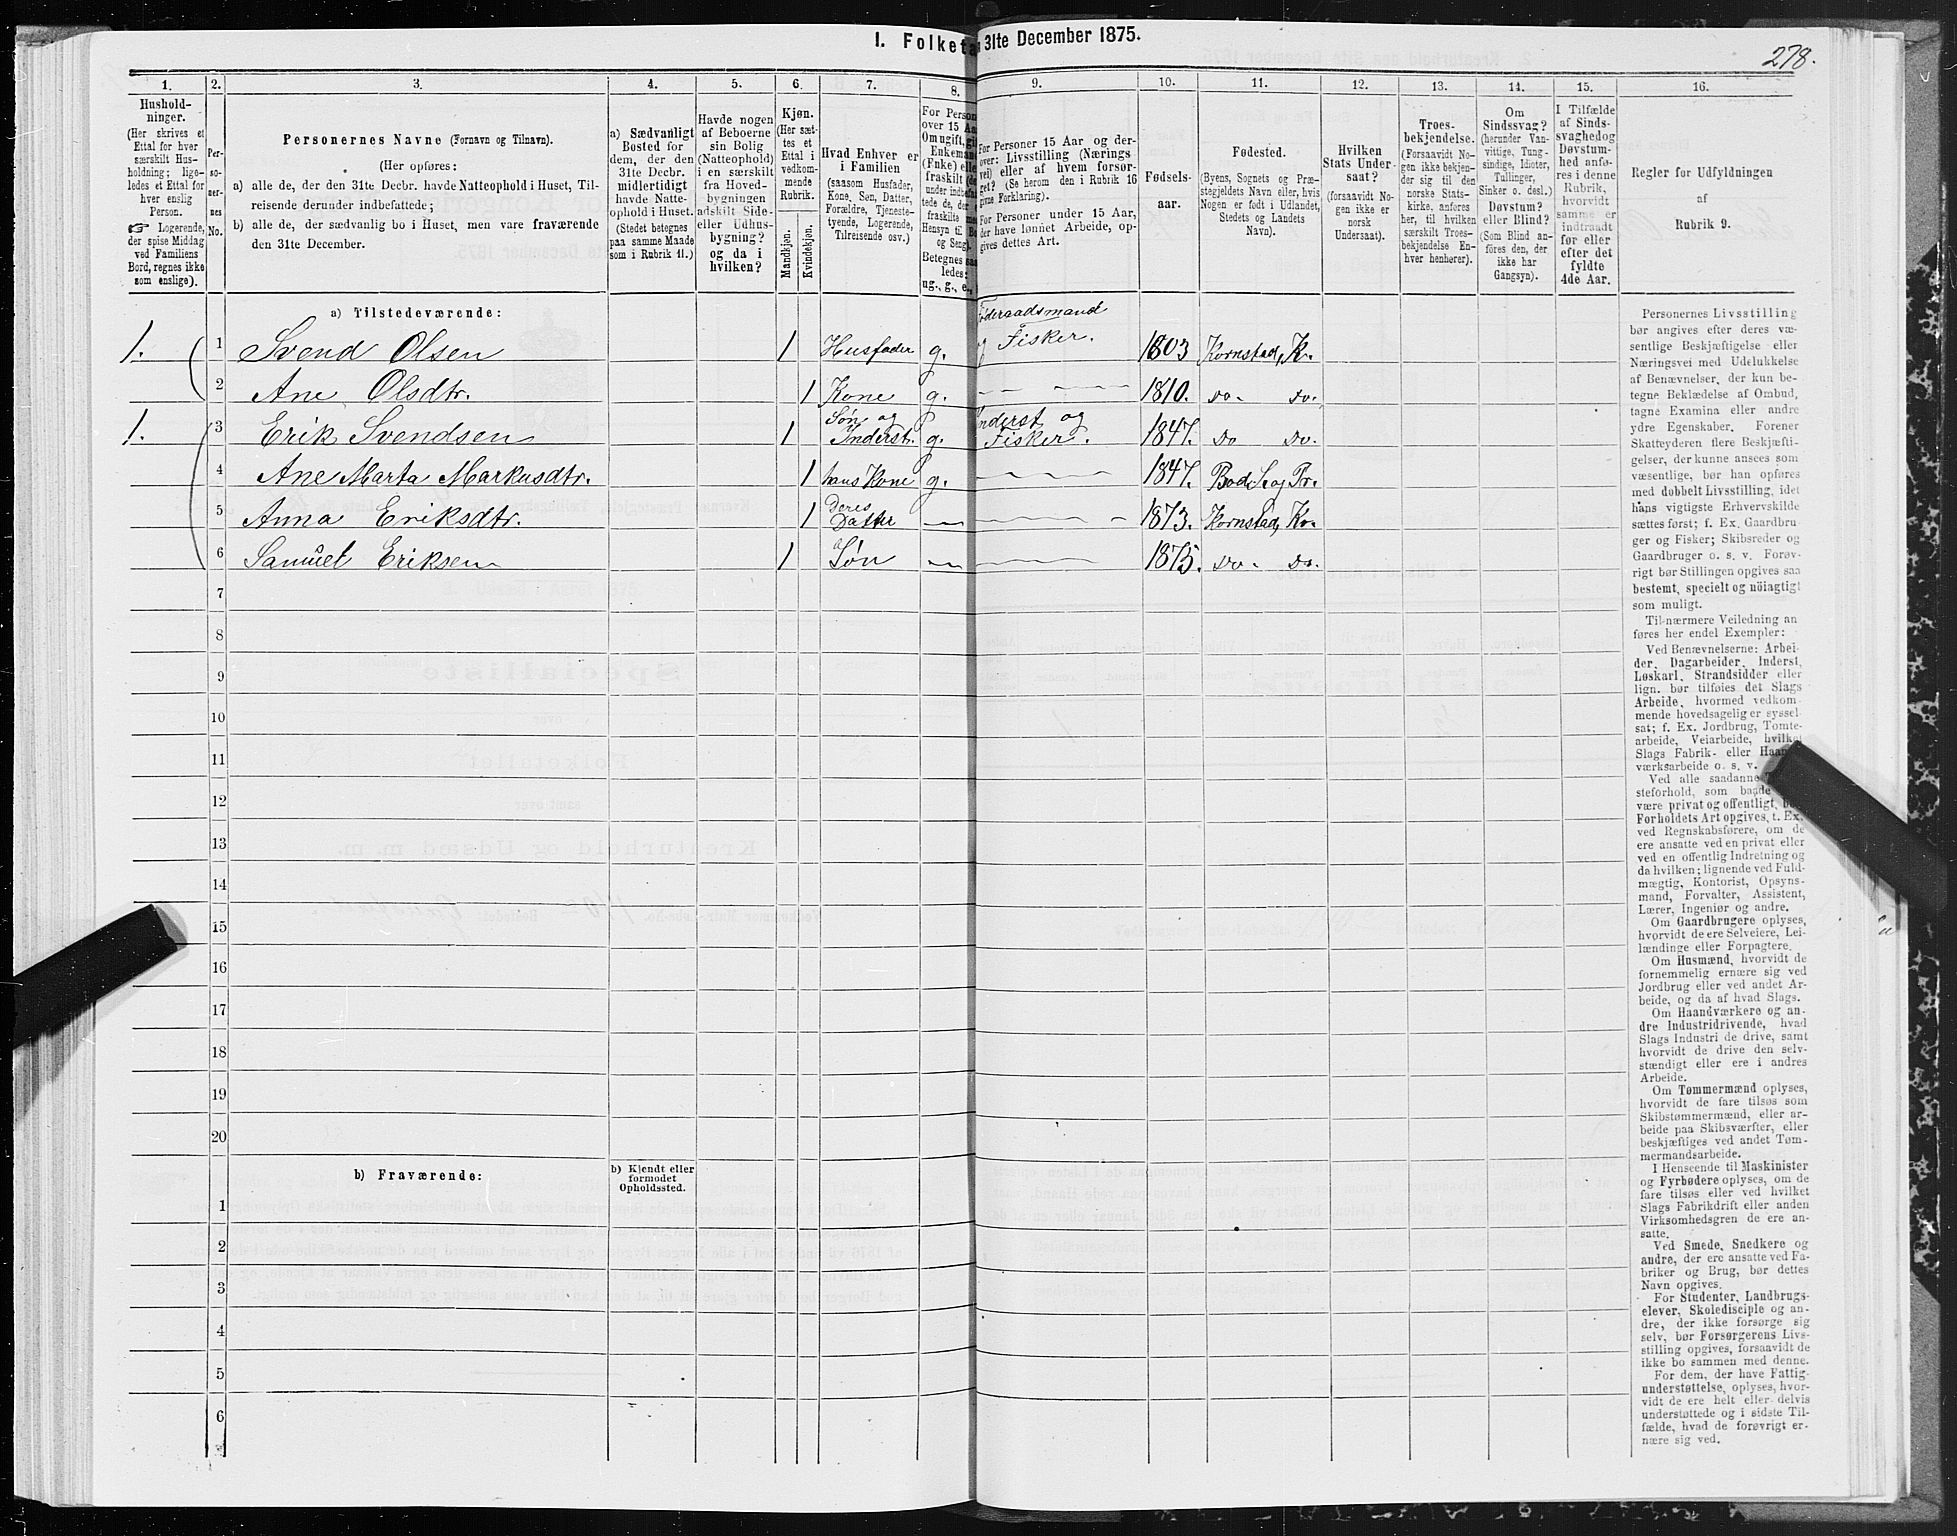 I. Folketa 31te December 1875.
278.
1. 2. 3. 4. 5. 6. 7. 8. 9. 10. 11. 12. 13. 14. 15. 16.
Hushold-
ninger.
(Her skrives et
Ettal for hver
særskilt Hus-
holdning; lige-
ledes et Ettal for
hver enslig
Person.
☞ Logerende,
der spise Middag
ved Familiens
Bord, regnes ikke
som enslige).
Per-
so-
ner-
nes
No.
Personernes Navne (Fornavn og Tilnavn).
(Her opføres:
a) alle de, der den 31te Decbr. havde Natteophold i Huset, Til-
reisende derunder indbefattede;
b) alle de, der sædvanlig bo i Huset, men vare fraværende
den 31te December.
a) Sædvanligt
Bosted for
dem, der den
31te Decbr.
midlertidigt
havde Natte-
ophold i Huset.
(Stedet betegnes
paa samme Maade
som i Rubrik 11.)
Havde nogen
af Beboerne
sin Bolig
(Natteophold)
i en særskilt
fra Hoved-
bygningen
adskilt Side-
eller Udhus-
bygning?
og da i
hvilken?
Kjøn.
(Her sæt-
tes et
Ettal i
vedkom-
mende
Rubrik.
Mandkjøn.
Kvindekjøn.
Hvad Enhver er
i Familien
(saasom Husfader,
Kone, Søn, Datter,
Forældre, Tjeneste-
tyende, Logerende,
Tilreisende osv.)
For Person
over 15 Aa
Om ugift, gif
Enkeman
(Enke) elle
fraskilt (de
under indbefa
tede de, der e
fraskilte me
Hensyn til Bo
og Seng).
Betegnes saa
ledes:
ug., g., e.,
For Personer 15 Aar og der-
over: Livsstilling (Nærings-
vei) eller af hvem forsør-
get? (Se herom den i Rubrik 16
givne Forklaring).
For Personer under 15 Aar,
der have lønnet Arbeide, op-
gives dettes Art.
Fødsels-
aar.
Fødested.
(Byens, Sognets og Præ-
stegjeldets Navn eller, hvis
Nogen er født i Udlandet,
Stedets og Landets
Navn).
Hvilken
Stats Under-
saat?
(forsaavidt No-
gen ikke er
norsk
Undersaat).
Troes-
bekjendelse.
(Forsaavidt No-
gen ikke bekjen-
der sig til den
norske Stats-
kirke, anføres
her, til hvilken
særskilt Troes-
bekjendelse En-
hver henhører).
Om
Sindssvag?
(herunder Van-
vittige, Tung-
sindige, Idioter,
Tullinger,
Sinker o. desl.)
Døvstum?
eller Blind?
(Som Blind an-
føres den, der
ikke har
Gangsyn).
I Tilfælde
af Sinds-
svaghed og
Døvstum-
hed anfø-
res i denne
Rubrik,
hvorvidt
samme er
indtraadt
før eller
efter det
fyldte
4de Aar.
Regler for Udfyldningen
af
Rubrik 9.
a) Tilstedeværende:
Føderaadsmand
1. 1 Svend Olsen 1 Husfader g. og Fisker. 1803 Kornstad, K.
2 Ane Olsdtr. 1 Kone g. 1810. do. do.
1. 3 Erik Svendsen 1 Søn og Inderst. g. Inderst og Fisker. 1847. do do.
4 Ane Marta Markusdtr. 1 hans Kone g. 1847. Bod S. og Pr.
5 Anna Eriksdtr. 1 Deres Datter 1873. Kornstad, Kv.
6 Samuel Eriksen 1 Søn 1875. do. do.
7
8
9
10
11
12
13
14
15
16
17
18
19
20
b) Fraværende:
b) Kjendt eller
formodet
Opholdssted.
1
2
3
4
5
6
Personernes Livsstilling
bør angives efter deres væ-
sentlige Beskjæftigelse eller
Næringsvei med Udelukkelse
af Benævnelser, der kun be-
tegne Beklædelse af Ombud,
tagne Examina eller andre
ydre Egenskaber. Forener
Skatteyderen flere Beskjæfti-
gelser, der kunne ansees som
væsentlige, bør han opføres
med dobbelt Livsstilling, idet
hans vigtigste Erhvervskilde
sættes først; f. Ex. Gaardbru-
ger og Fisker; Skibsreder og
Gaardbruger o. s. v. Forøv-
rigt bør Stillingen opgives saa
bestemt, specielt og nöiagtigt
som muligt.
Til nærmere Veiledning an
føres her endel Exempler:
Ved Benævnelserne: Arbei-
der, Dagarbeider, Inderst,
Løskarl, Strandsidder eller
lign. bør tilføies det Slags
Arbeide, hvormed vedkom-
mende hovedsagelig er syssel-
sat; f. Ex. Jordbrug, Tomte-
arbeide, Veiarbeide, hvilket
Slags Fabrik- eller Haand-
værksarbeide o. s. v.
Ved alle saadanne
steforhold, som baade
være privat og offentligt,
Forholdets Art opgives, t. Ex.
ved Regnskabsførere, om de
ere ansatte ved en privat eller
ved en offentlig Indretning og
da hvilken; lignende ved Fuld-
mægtig, Kontorist, Opsyns-
mand, Forvalter, Assistent,
Lærer, Ingeniør og andre.
Om Gaardbrugere oplyses,
hvorvidt de ere Selveiere, Lei-
lændinge eller Forpagtere.
Om Husmænd, hvorvidt de
fornemmelig ernære sig ved
Jordbrug eller ved andet Ar-
beide, og da af hvad Slags.
Om Haandværkere og an-
dre Industridrivende, hvad
Slags Industri de drive, samt
hvorvidt de drive den selv-
stændigt eller ere i andres
Arbeide.
Om Tømmermænd oplyses,
hvorvidt de fare tilsøs som
Skibstømmermænd, eller ar-
beide paa Skibsværfter, eller
beskjæftiges ved andet Tøm-
mermandsarbeide.
I Henseende til Maskinister
og Fyrbødere oplyses, om de
fare tilsøs eller ved hvilket
Slags Fabrikdrift eller anden
Virksomhedsgren de ere an-
satte.
Ved Smede, Snedkere og
andre, der ere ansatte ved Fa-
briker og Brug, bør dettes
Navn opgives.
For Studenter, Landbrugs-
elever, Skoledisciple og an-
dre, der ikke forsørge sig
selv, bør Forsørgerens Livs-
stilling opgives, forsaavidt de
ikke bo sammen med denne.
For dem, der have Fattig-
understøttelse, oplyses, hvor-
vidt de ere helt eller delvis
understøttede og i sidste Til-
fælde, hvad de forøvrigt er-
nære sig ved.